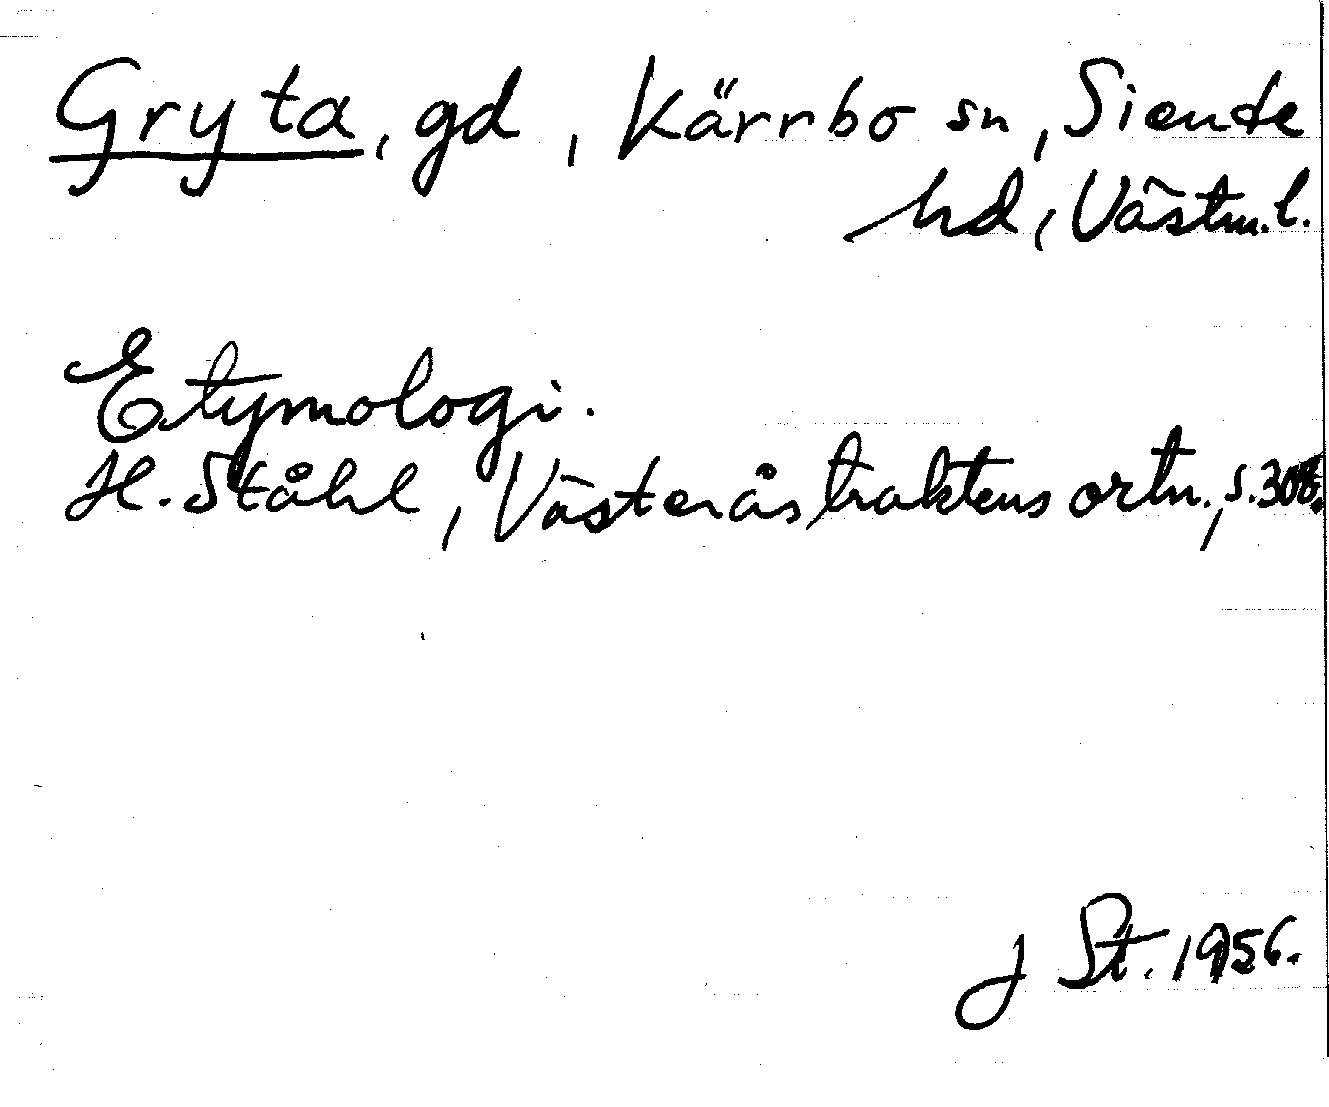 Gryta, gd, Kärrbo sn, Siende
hd, Västm.l.
Etymologi.
H. Ståhl, Västeråstraktens ortn., s. 308.
J St. 1956.